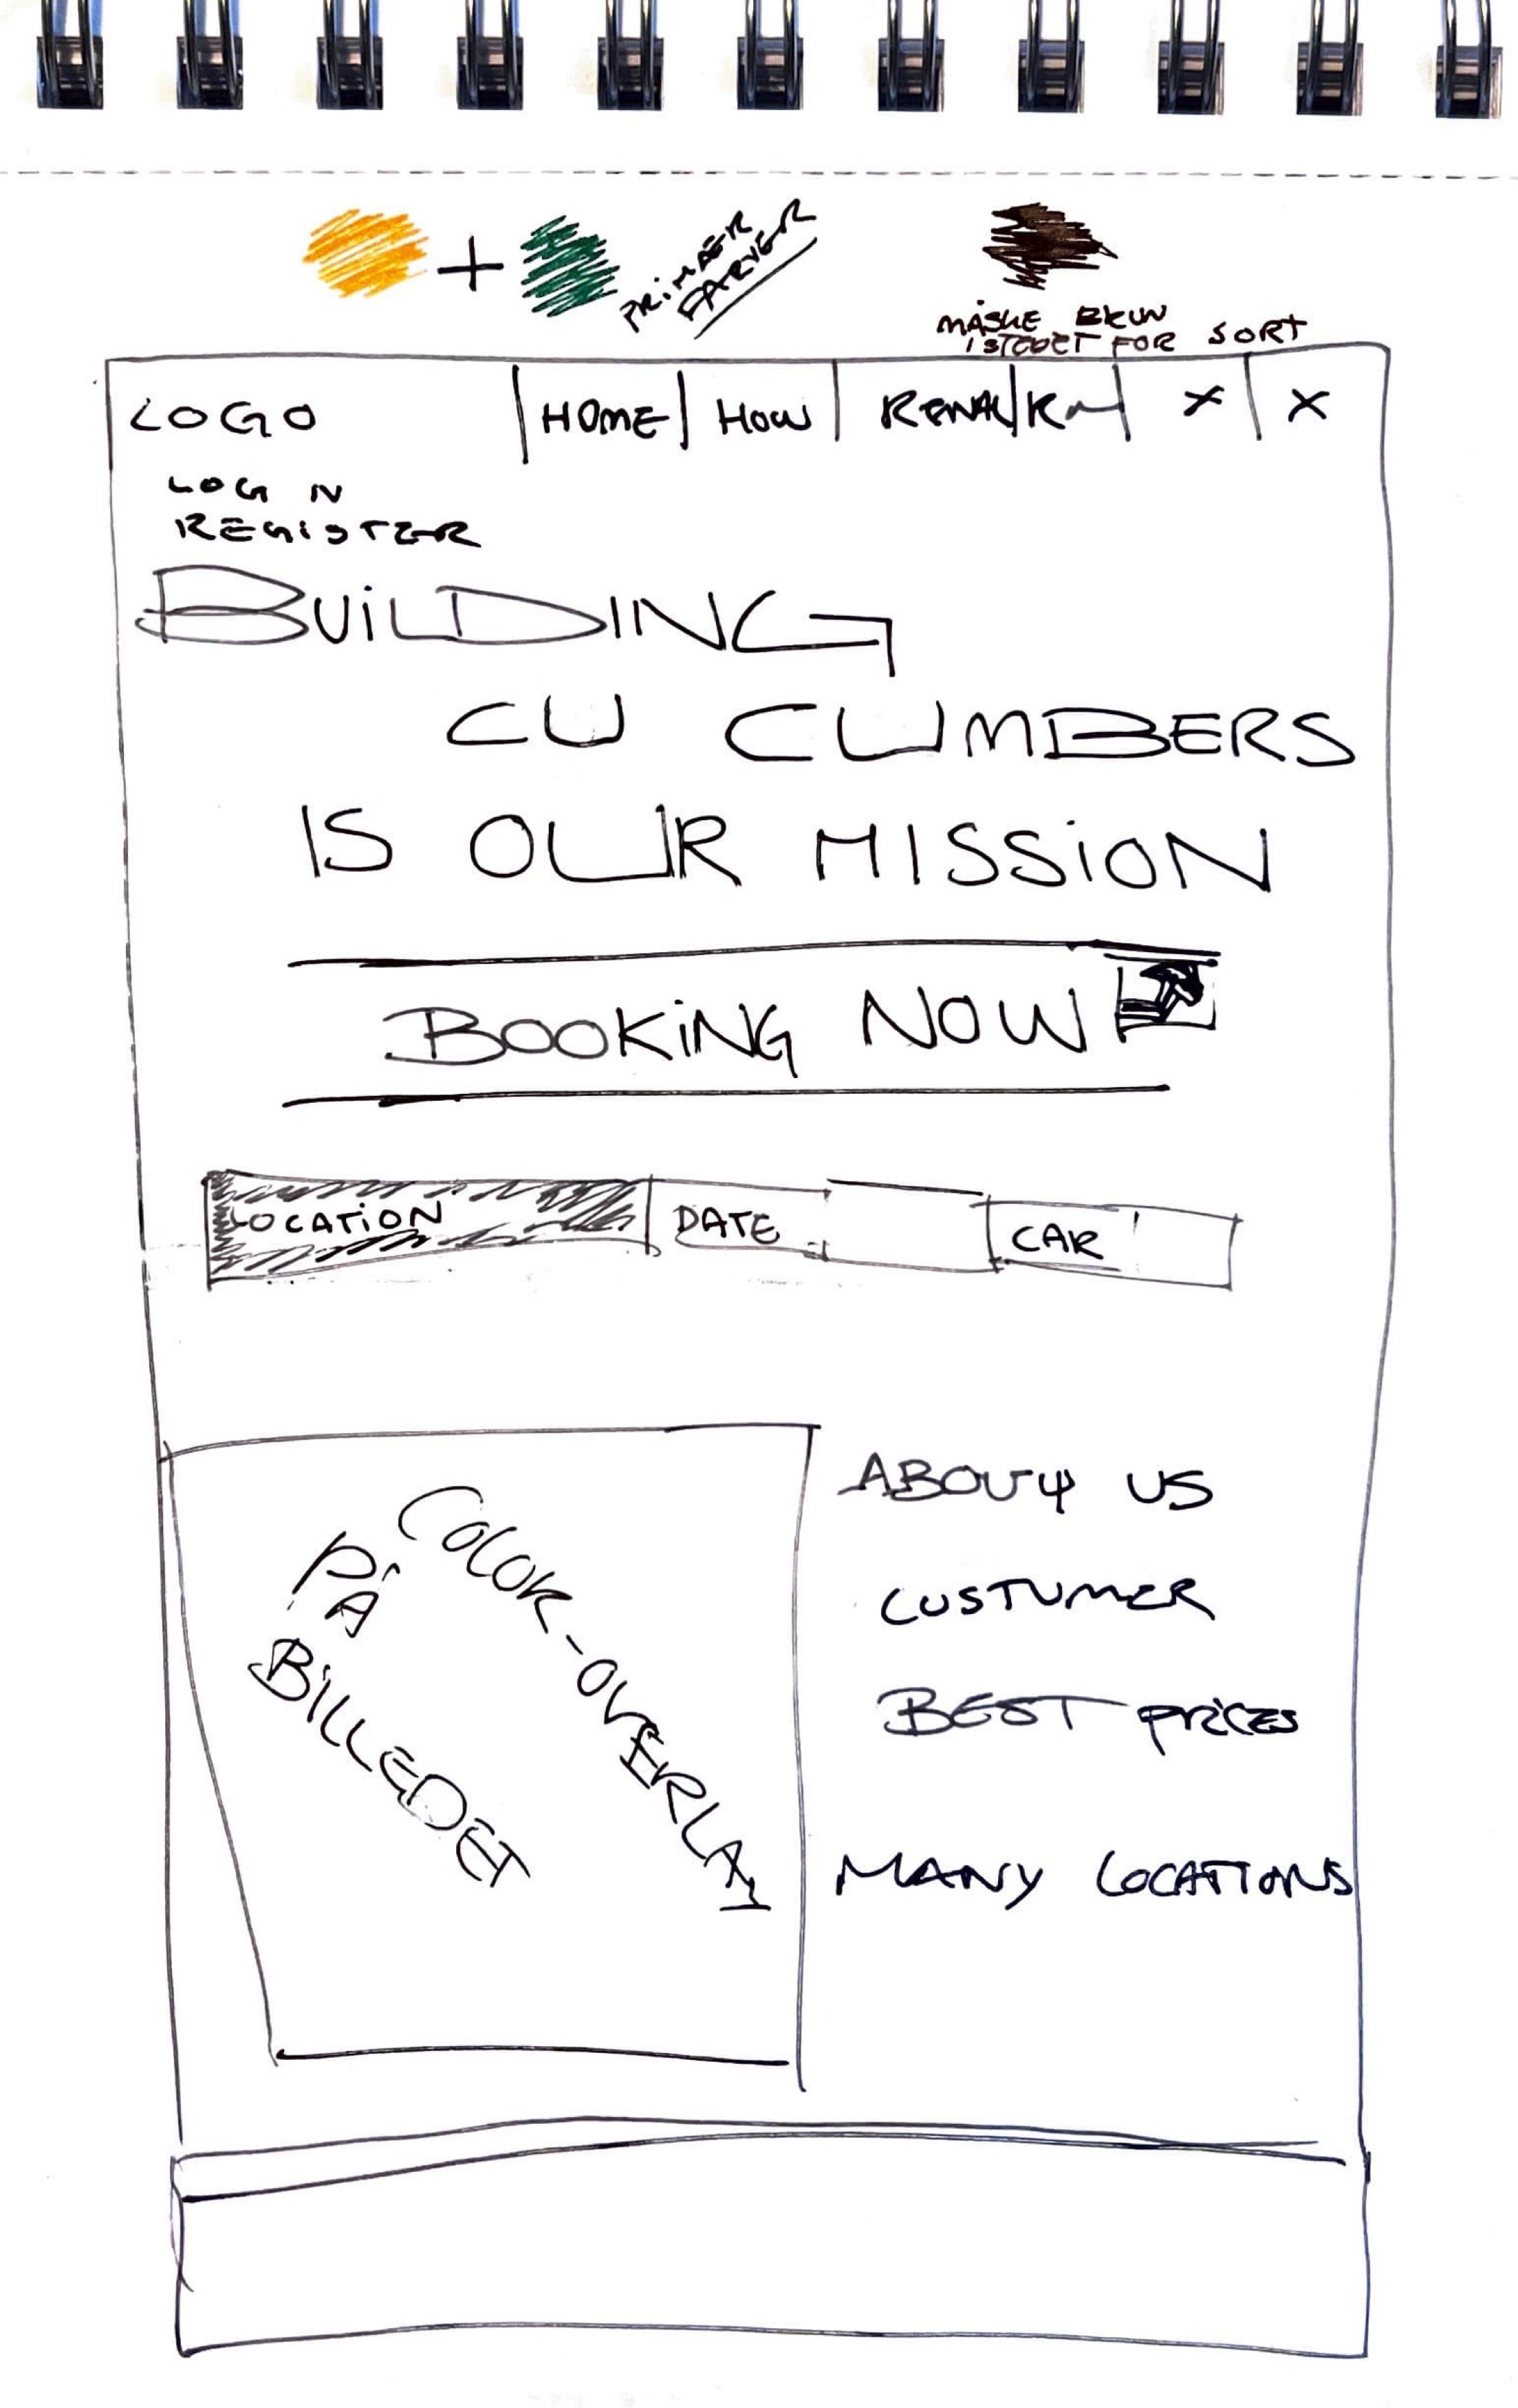 PRIMÆR
FARVER
MÅSKE BRUN
ISTEDET FOR SORT
LOGO | HOME | HOW | | X | X
LOG N
REGISTER
BUILDING
CU CLIMBERS
IS OUR MISSION
BOOKING NOW
LOCATION DATE CAR
COLOR-OVERLAY
PÅ
BILLEDET
ABOUT US
CUSTUMER
BEST PRICES
MANY LOCATIONS